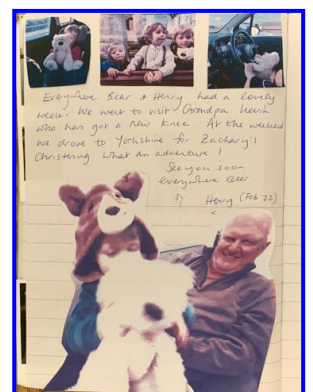 Everywhere Bear & Henry had a lovely
week. We went to visit Grandpa
who has got a new knee. At the weekend
we drove to Yorkshire for Zachary's
Christening. What an adventure!
See you soon
everywhere Bear
Henry (Feb '22)
x